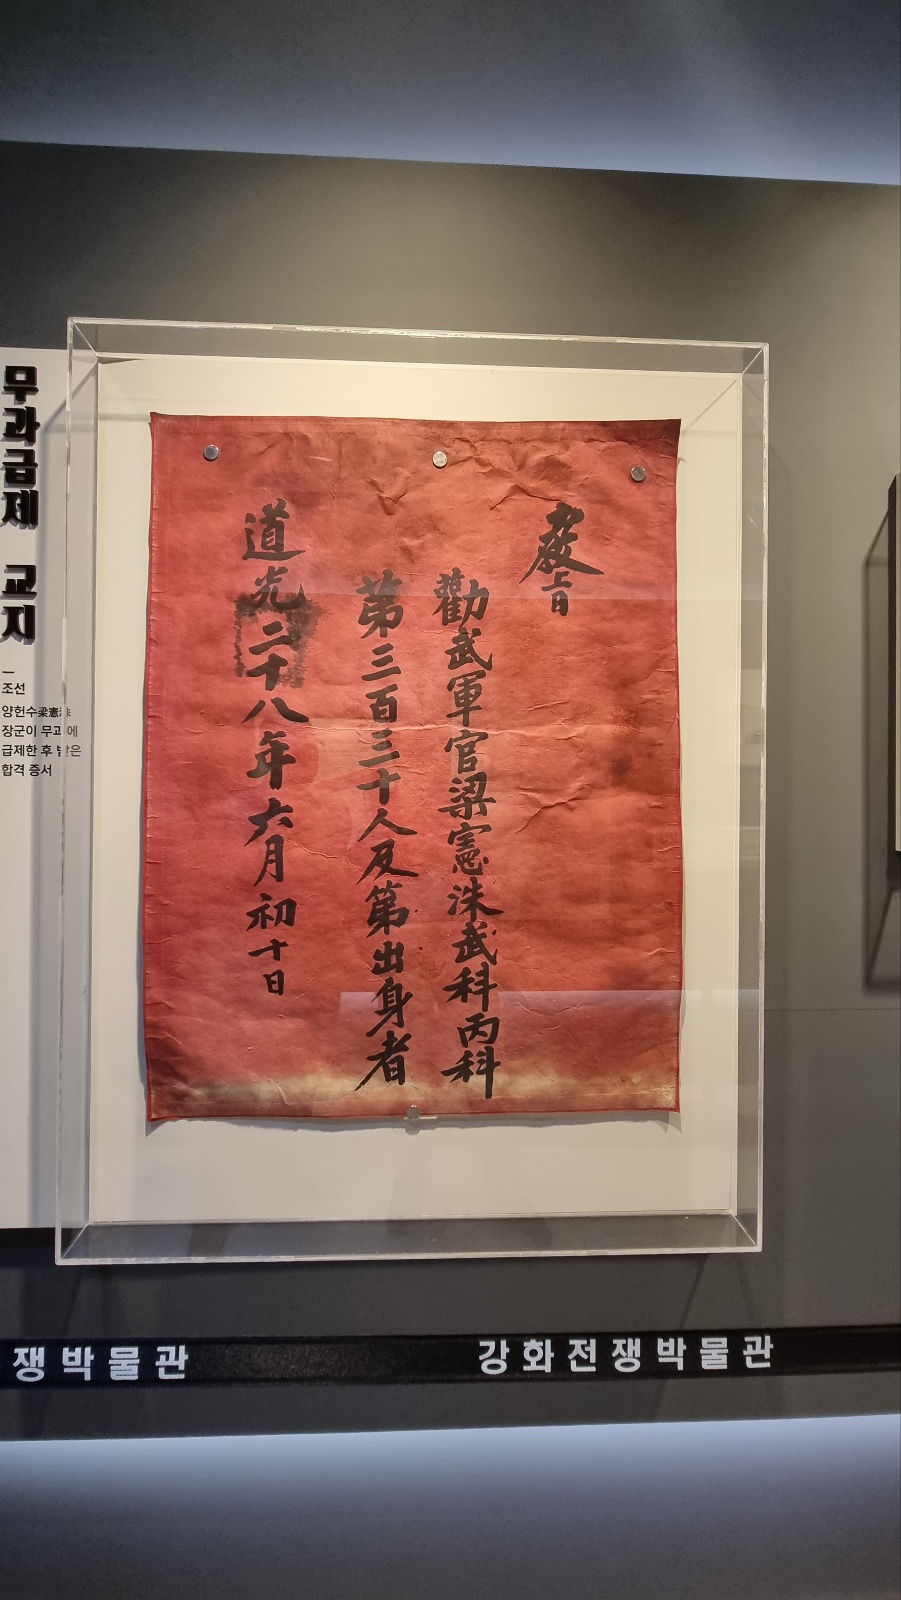 무과급제 교지
조선
양헌수梁憲洙
장군이 무과에
급제한 후 받은
합격 증서
教旨
勸武軍官梁憲洙武科丙科
第三百三十人及第出身者
道光二十八年六月初十日
쟁박물관
강화전쟁박물관